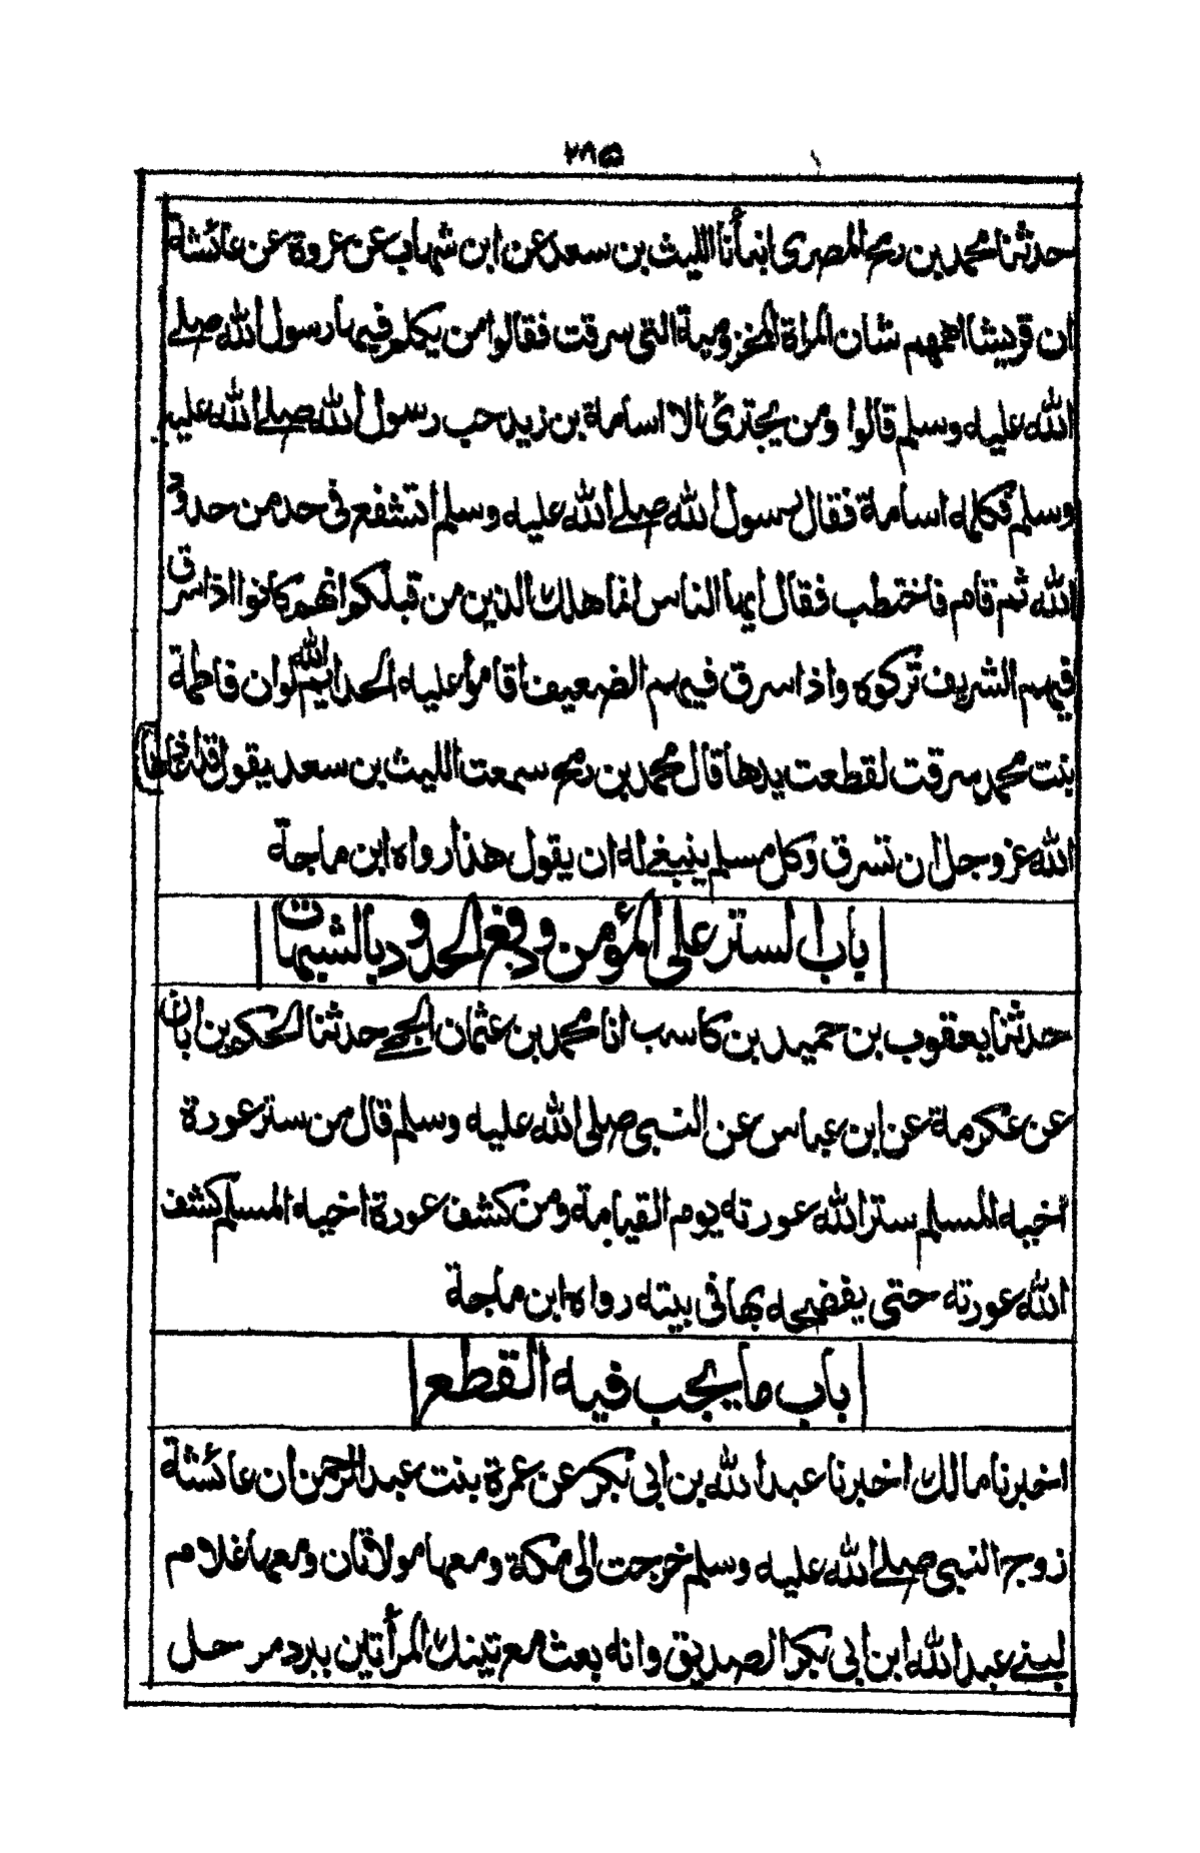 ٢٨٥
حدثنا محمد بن رمح المصرى انبأنا الليث بن سعد عن ابن شهاب عن عروة عن عائشة
ان قريشا اهمهم شان المراة المخزومية التى سرقت فقالوا من يكلم فيها رسول الله صلى
الله عليه وسلم قالوا ومن يجترئ الا اسامة بن زيد حب رسول الله صلى الله عليه
وسلم فكلمه اسامة فقال رسول الله صلى الله عليه وسلم اتشفع فى حد من حدود
الله ثم قام فاختطب فقال ايها الناس انما هلك الذين من قبلكم انهم كانوا اذا سرق
فيهم الشريف تركوه واذا سرق فيهم الضعيف اقاموا عليه الحد ايم الله لو ان فاطمة
بنت محمد سرقت لقطعت يدها قال محمد بن رمح سمعت الليث بن سعد يقول قد اعاذها
الله عز وجل ان تسرق وكل مسلم ينبغى له ان يقول هذا رواه ابن ماجة
باب الستر على المؤمن ودفع الحدود بالشبهات
حدثنا يعقوب بن حميد بن كاسب انا محمد بن عثمان الجمحى حدثنا الحكم بن ابان
عن عكرمة عن ابن عباس عن النبى صلى الله عليه وسلم قال من ستر عورة
اخيه المسلم ستر الله عورته يوم القيامة ومن كشف عورة اخيه المسلم كشف
الله عورته حتى يفضحه بها فى بيته رواه ابن ماجة
باب ما يجب فيه القطع
اخبرنا مالك اخبرنا عبد الله بن ابى بكر عن عمرة بنت عبد الرحمن ان عائشة
زوج النبى صلى الله عليه وسلم خرجت الى مكة ومعها مولاتان ومعها غلام
لبنى عبد الله ابن ابى بكر الصديق وانه بعث مع تينك المرأتين ببرد مرحل